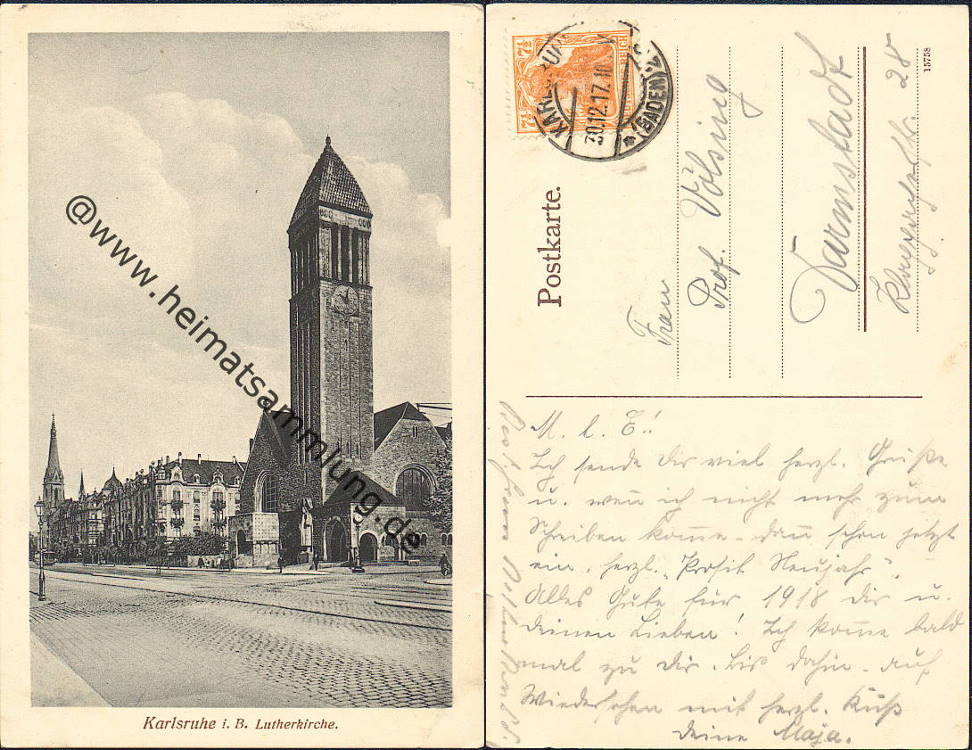 @www.heimatsammlung.de
Karlsruhe i. B. Lutherkirche.
7½ 7½
KARLSRUHE
30.12.17.
* (BADEN) 2.
Postkarte.
15758
Frau
Prof. Völsing
Darmstadt
28
M. l. E.!
Ich sende Dir viel herzl. Grüße
u. weñ ich nicht mehr zum
Schreiben kom̄e - dañ schon jetzt
ein herzl. „Prosit Neujahr".
Alles Gute für 1918 Dir u.
Deinen Lieben! Ich kom̄e bald
mal zu Dir. Bis dahin - auf
Wiedersehen mit herzl. Kuß
deine Maja.